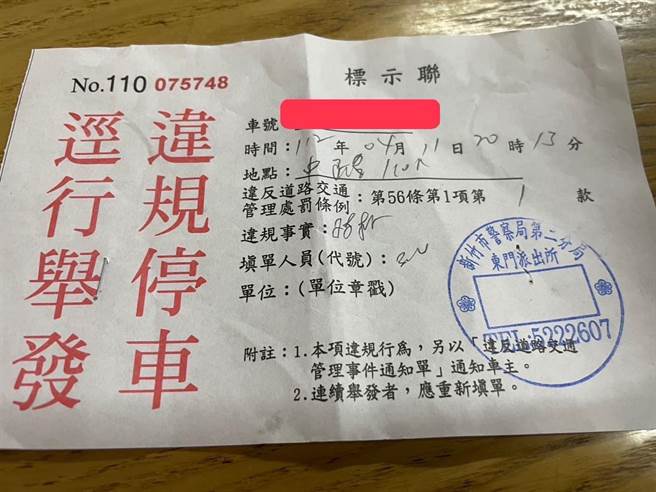 No.110 075748
標示聯
違規停車
逕行舉發
車號
時間：112年04月11日20時13分
地點：
違反道路交通管理處罰條例：第56條第1項第1款
違規事實：
填單人員(代號)：
單位：(單位章戳)
新竹市警察局第二分局
東門派出所
TEL:5222607
附註：1.本項違規行為，另以「違反道路交通
管理事件通知單」通知車主。
2.連續舉發者，應重新填單。